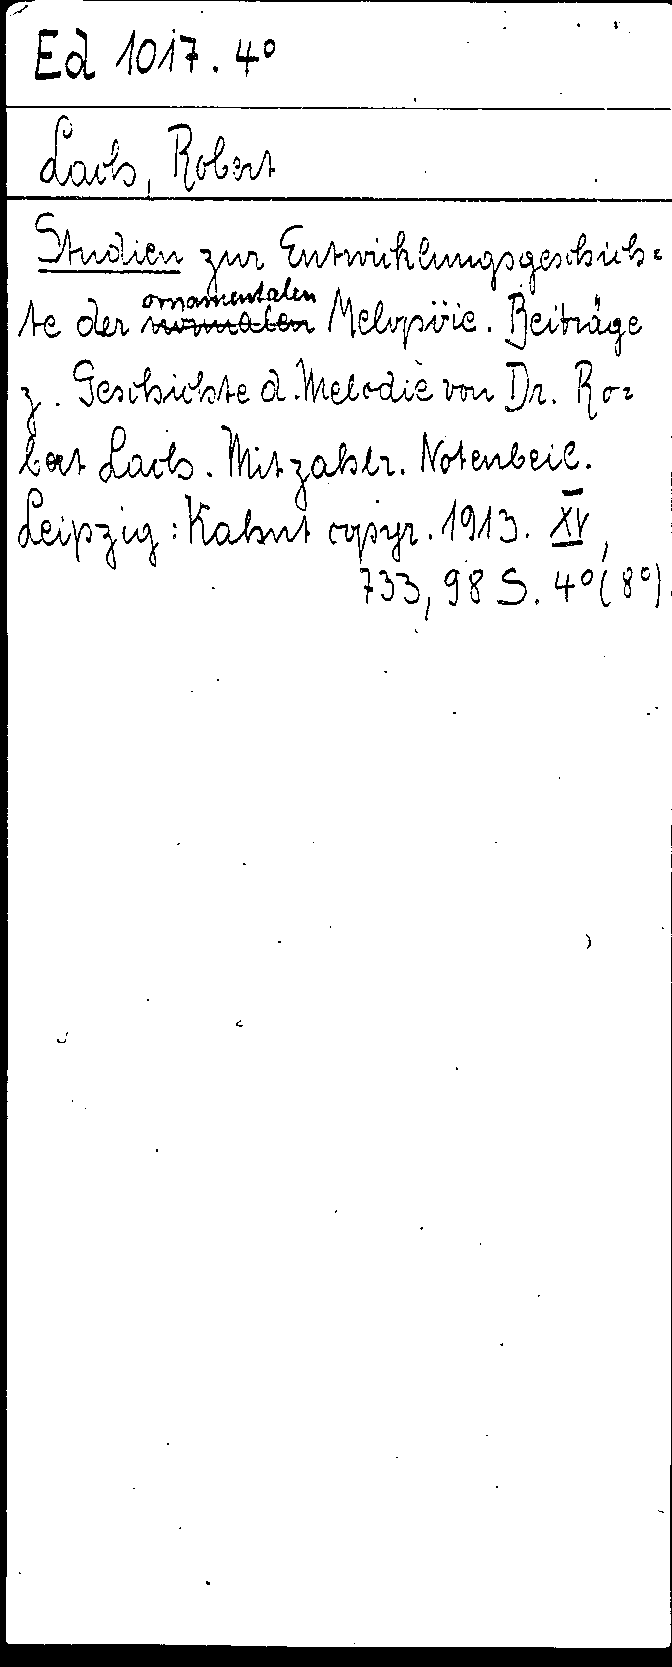 Ed 1017. 4°
Lach, Robert
Studien zur Entwicklungsgeschich=
te der ornamentalen Melopöie. Beiträge
z. Geschichte d. Melodie von Dr. Ro=
bert Lach. Mit zahlr. Notenbeil.
Leipzig: Kahnt copyr. 1913. XV,
733, 98 S. 4° (8°)